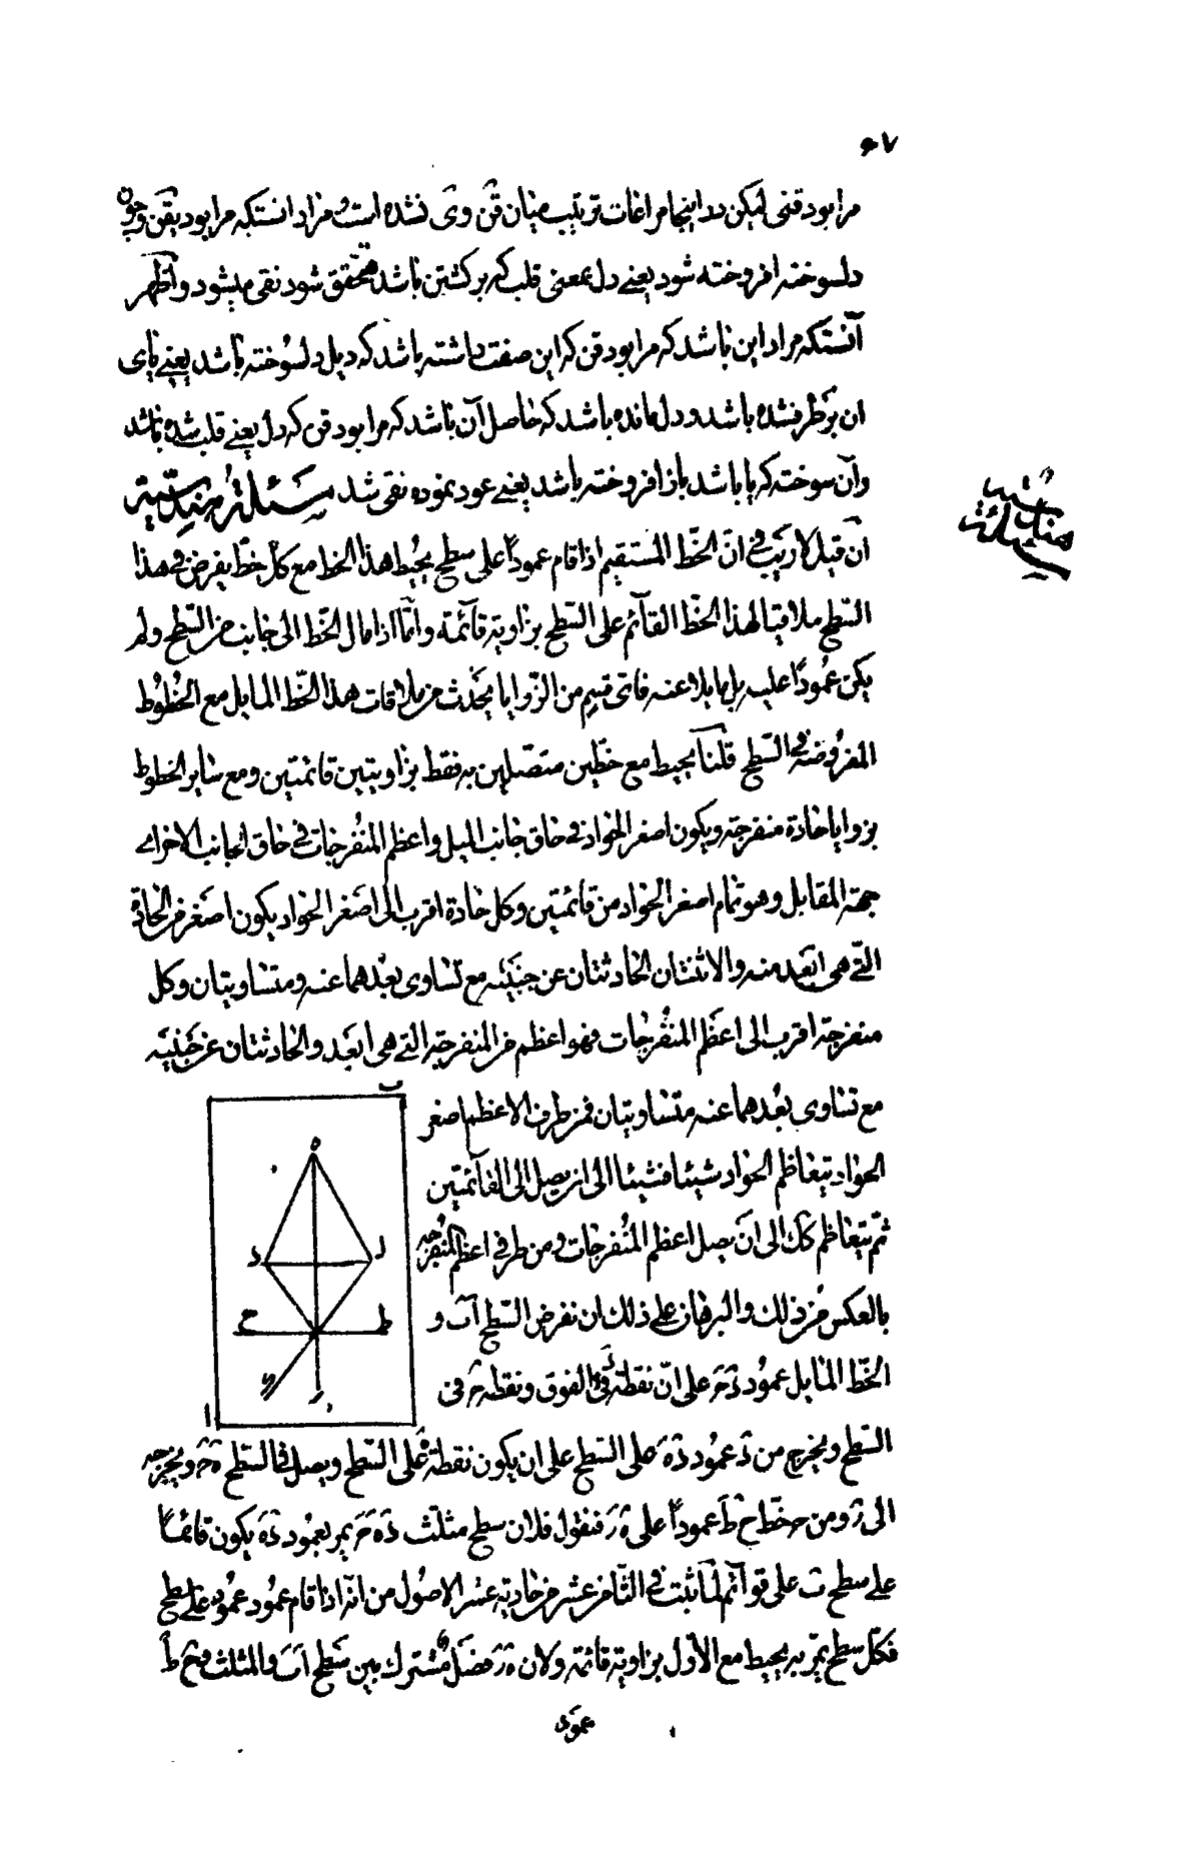 ۶۷
مرا بود قنی لیکن در اینجا مراعات ترتیب میان قن وی نشده است و مراد انستکه مرا بود یقن چون
دلسوخته افروخته شود یعنے دل بمعنی قلب که برگشتن باشد متحقق شود نقی میشود و اظهر
آنستکه مراد این باشد که مرا بود قن که این صفت داشته باشد که دیل دلسوخته باشد یعنے پای
ان بر طرف شده باشد و دل مانده باشد که حاصل آن باشد که مرا بود قن که دل یعنے قلب شده باشد
وآن سوخته که پا باشد باز افروخته باشد یعنے عود نموده نقی شد مسئلة هندسیة
هندسیه
مسئلة
ان قیل لا ریب فی انّ الخّط المستقیم اذا قام عموداً علی سطح یحیط هذا الخط مع کلّ خطّ یفرض فی هذا
السّطح ملاقیا لهذا الخّط القآئم علی السّطح بزاویة قآئمة وامّا اذا مال الخّط الی جانب من السّطح ولم
یکن عموداً علیه بل مایلا عنه فایّ قسیم من الزّوایا یحدث من ملاقات هذا الخّط المایل مع الخُطُوط
المفرُوضة فی السّطح قلنا یحیط مع خطّین متصّلین به فقط بزاویتین قائمتین ومع سایر الخطوط
بزوایا حادة منفرجة ویکون اصغر الحواد فی حاق جانب المیل واعظم المنُفرجات فی حاق الجانب الاخر اے
جهة المقابل وهو تمام اصغر الحواد من قائمتین وکل حادة اقرب الی اصَغر الحواد یکون اصَغر من الحادّة
التّے هی ابعَد منه والاثنتان الحادثتان عن جنبَیْه مع تساوی بعُدهما عنه ومتساویتان وکل
منفرجة اقرب الی اعظَم المنُفرجات فهو اعظم من المنفرجة التّے هی ابعَد والحادثتان عن جَنبَیه
مع تساوی بعُدهما عنه متساویتان فمن طرف الاعظم اصغر
الحواد یتعاظم الحواد شیئا فشیئا الی ان یصل الی القآئمتین
ثم یتعاظم کك الی ان یصل اعظم المنُفرجات ومن طرفی اعظم المنُفرجه
بالعکس من ذلك والبرهان علی ذلك ان نفرض السّطح آب و
الخّط المایل عموُد دَحَ علی انّ نقطة دَ فی الفوق ونقطه حَ فی
السّطح ویخرج من دَ عموُد دَهَ علی السّطح علی ان یکون نقطة هَ علی السّطح ویصل فی السّطح هَحَ ویخرجه
الی زَ ومن حَ خطّ حَ طَ عموداً علی هَ زَ فنقول فلان سطح مثلّث دَهَحَ یمر بعموُد دَهَ یکون قائمًا
علے سطح ب علی قوآئم لما ثبت فی الثّامن عشر من حادیة عشر الاصُول من انّه اذا قام عموُد علی سطح
فکلّ سطح یمرّ به یحیط مع الاوّل بزاویة قائمة ولان هَ زَ فصَل مُشترك بین سَطح آبَ والمثلث و حَ طَ
عموَد
ب
ه
د
ل
ح
ط
ا